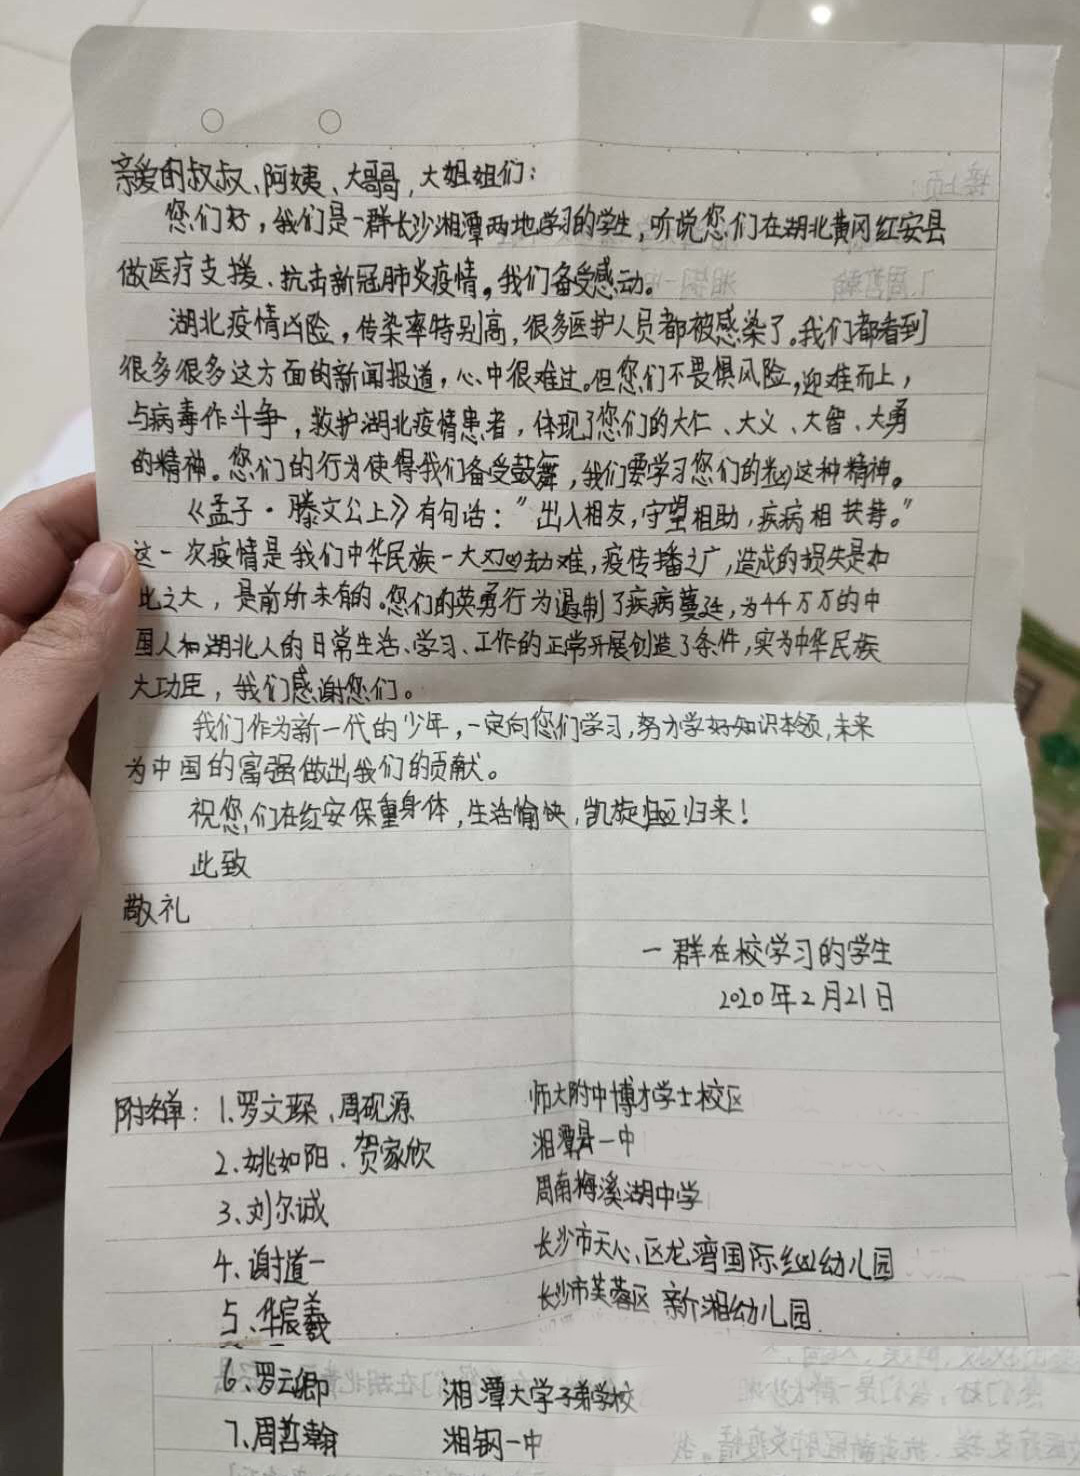 亲爱的叔叔、阿姨、大哥哥,大姐姐们:
您们好,我们是一群长沙湘潭两地学习的学生,听说您们在湖北黄冈红安县
做医疗支援、抗击新冠肺炎疫情。我们备受感动。
湖北疫情凶险,传染率特别高,很多医护人员都被感染了。我们都看到
很多很多这方面的新闻报道,心中很难过。但您们不畏惧风险,迎难而上,
与病毒作斗争,救护湖北疫情患者,体现了您们的大仁、大义、大智、大勇
的精神。您们的行为使得我们备受鼓舞,我们要学习您们的这种精神。
《孟子·滕文公上》有句话:"出入相友,守望相助,疾病相扶持。"
这一次疫情是我们中华民族一大劫难,疫传播之广,造成的损失是如
此之大,是前所未有的。您们的英勇行为遏制了疾病蔓延,为44万万的中
国人和湖北人的日常生活、学习、工作的正常开展创造了条件,实为中华民族
大功臣,我们感谢您们。
我们作为新一代的少年,一定向您们学习,努力学好知识本领,未来
为中国的富强做出我们的贡献。
祝您们在红安保重身体,生活愉快,凯旋归来!
此致
敬礼
一群在校学习的学生
2020年2月21日
附名单:1.罗文琛、周砚源 师大附中博才学士校区
2、姚如阳、贺家欣 湘潭县一中
3、刘尔诚 周南梅溪湖中学
4、谢道一 长沙市天心区龙湾国际幼儿园
5、华宸羲 长沙市芙蓉区新湘幼儿园
6、罗云卿 湘潭大学子弟学校
7、周哲瀚 湘钢一中